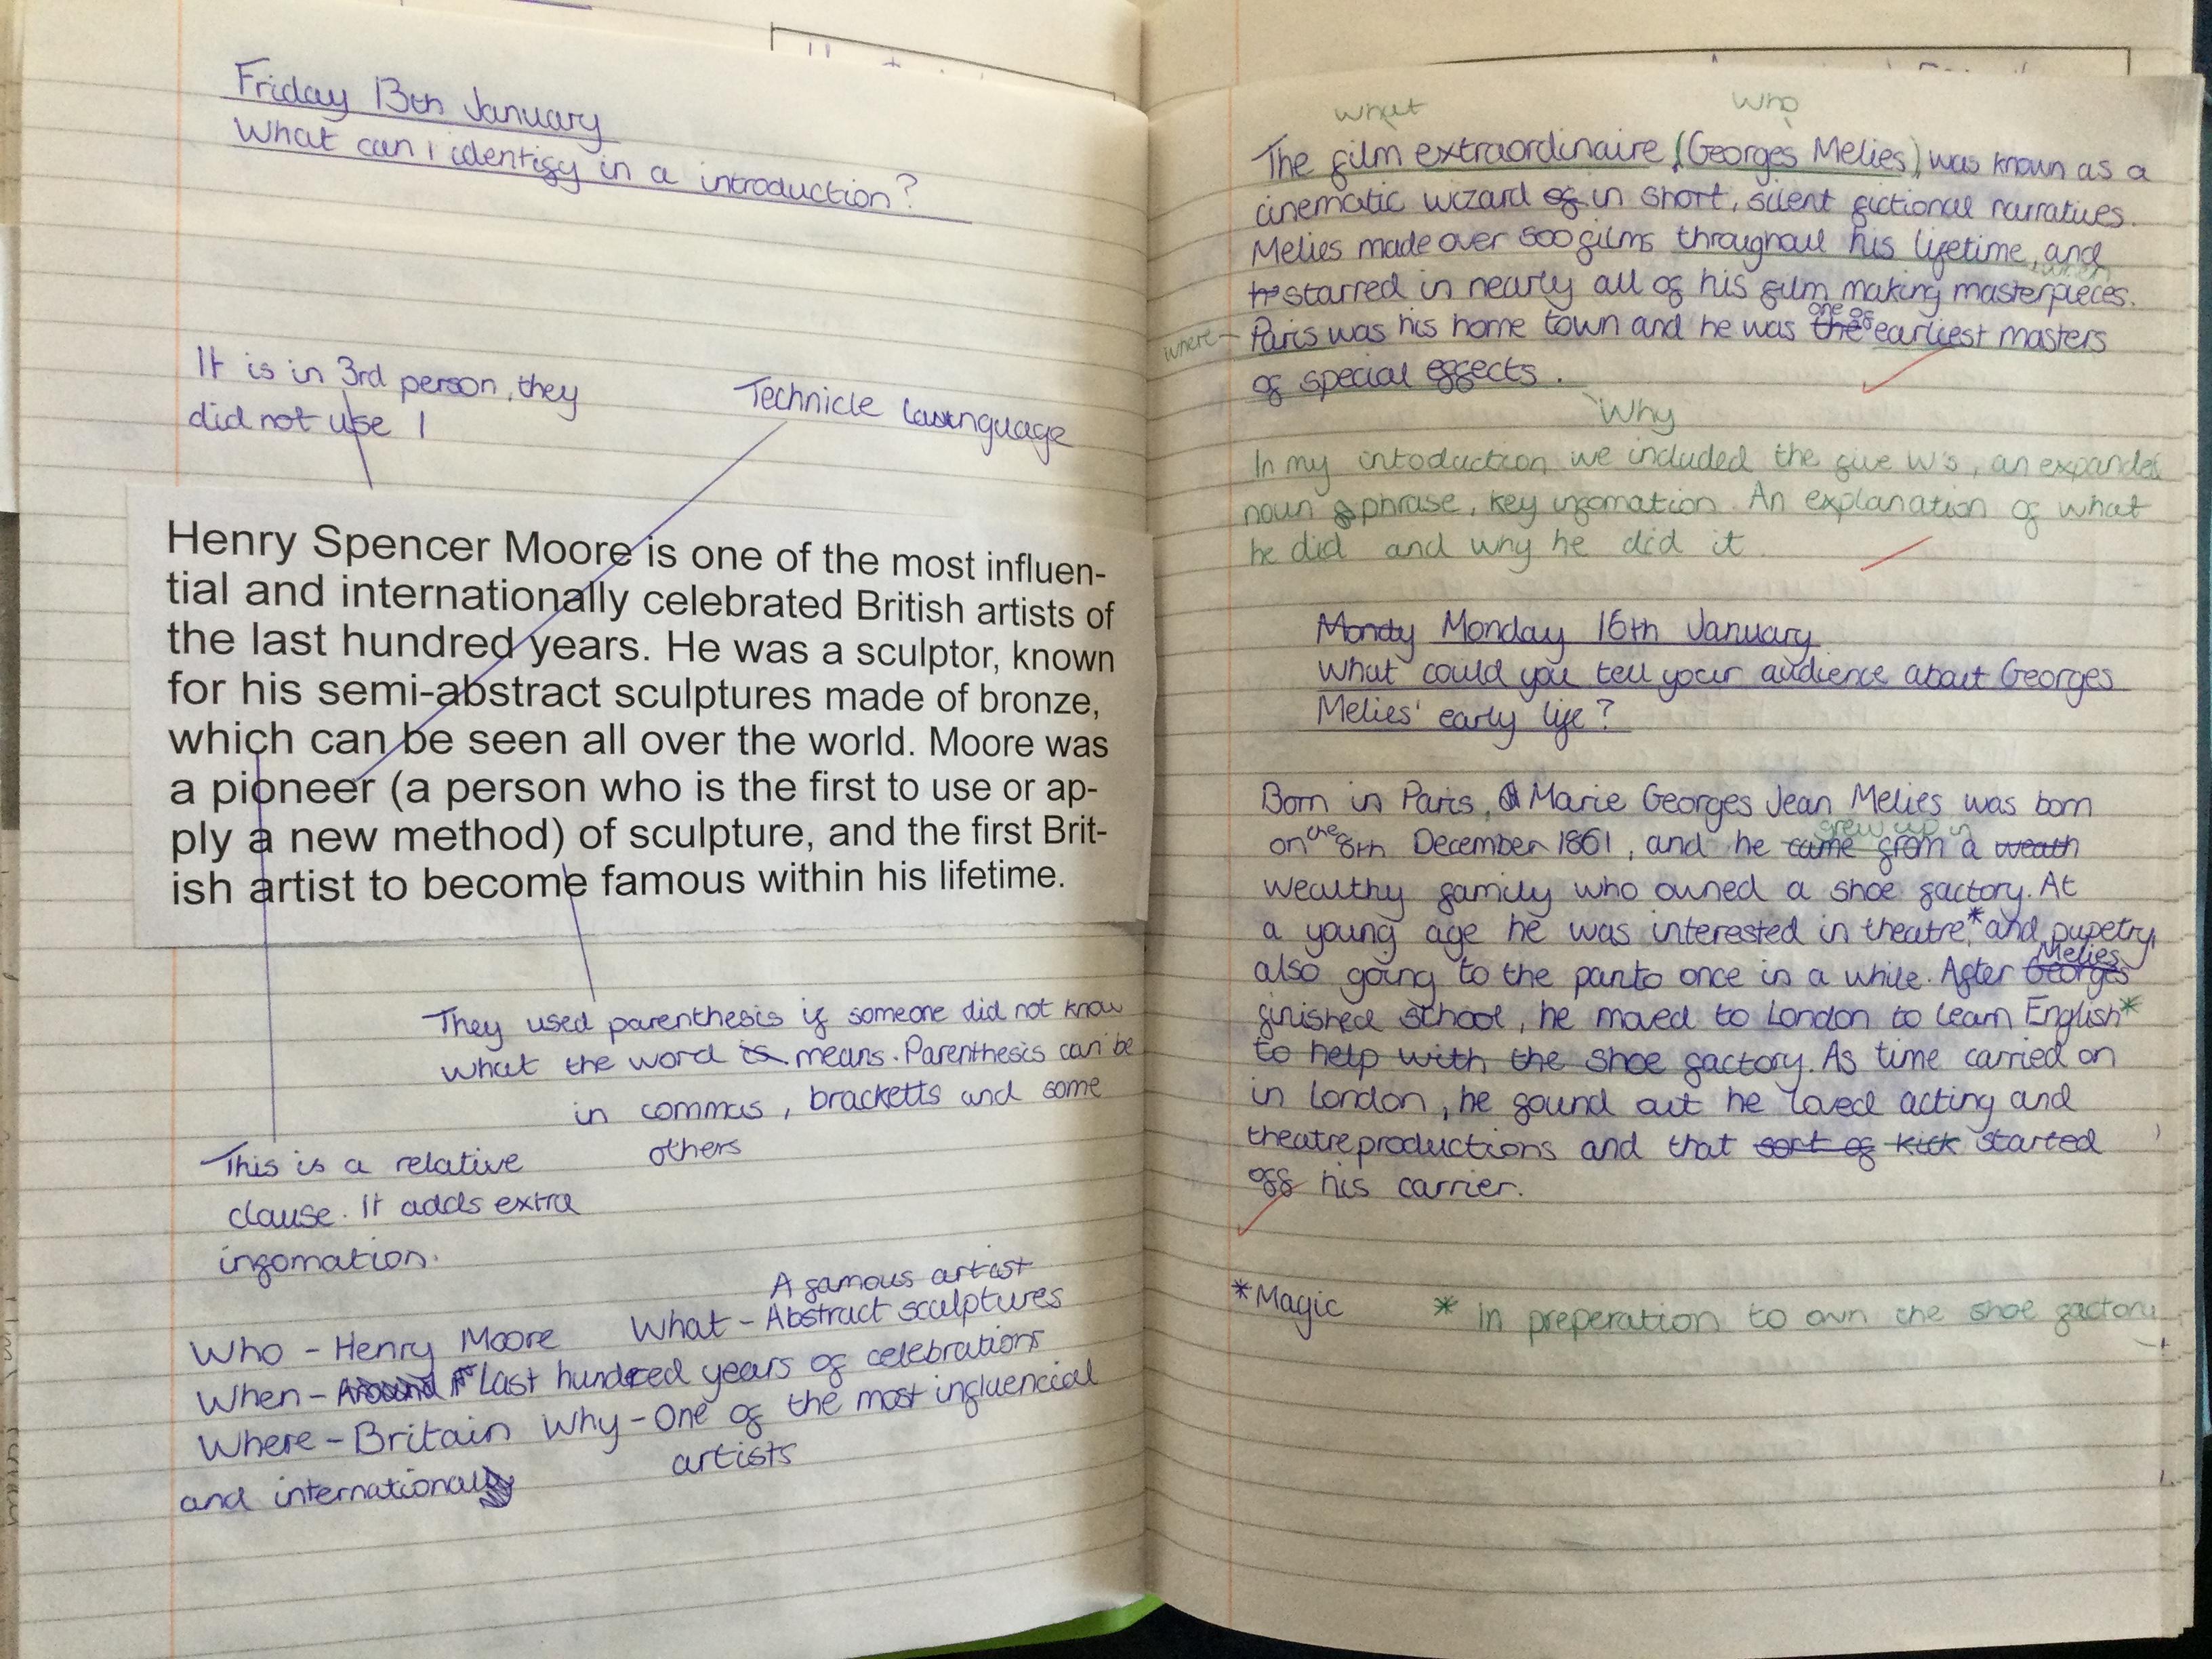 Friday 13th January
What can I identify in a introduction?
It is in 3rd person, they
did not use I
Technicle language
Henry Spencer Moore is one of the most influen-
tial and internationally celebrated British artists of
the last hundred years. He was a sculptor, known
for his semi-abstract sculptures made of bronze,
which can be seen all over the world. Moore was
a pioneer (a person who is the first to use or ap-
ply a new method) of sculpture, and the first Brit-
ish artist to become famous within his lifetime.
They used parenthesis if someone did not know
what the word is means. Parenthesis can be
in commas, bracketts and some
others
This is a relative
clause. It adds extra
infomation.
A famous artist
Who - Henry Moore What - Abstract sculptures
When - Around Last hundred years of celebrations
Where - Britain Why - One of the most influencial
and international artists
what Who
The film extraordinaire, (Georges Melies), was known as a
cinematic wizard of in short, silent fictional narratives.
Melies made over 500 films throughout his lifetime, and
when
starred in nearly all of his film making masterpieces.
one of
where - Paris was his home town and he was the earliest masters
of special effects.
Why
In my intoduction we included the five W's, an expanded
noun phrase, key infomation. An explanation of what
he did and why he did it.
Mondy Monday 16th January
What could you tell your audience about Georges
Melies' early life?
Born in Paris, Marie Georges Jean Melies was born
the grew up in
on 8th December 1861, and he came from a weath
wealthy family who owned a shoe factory. At
a young age he was interested in theatre,* and pupetry,
Melies
also going to the panto once in a while. After Georges
finished school, he moved to London to learn English*
to help with the shoe factory. As time carried on
in London, he found out he loved acting and
theatre productions and that sort of kick started
off his carrier.
*Magic * In preperation to own the shoe factory